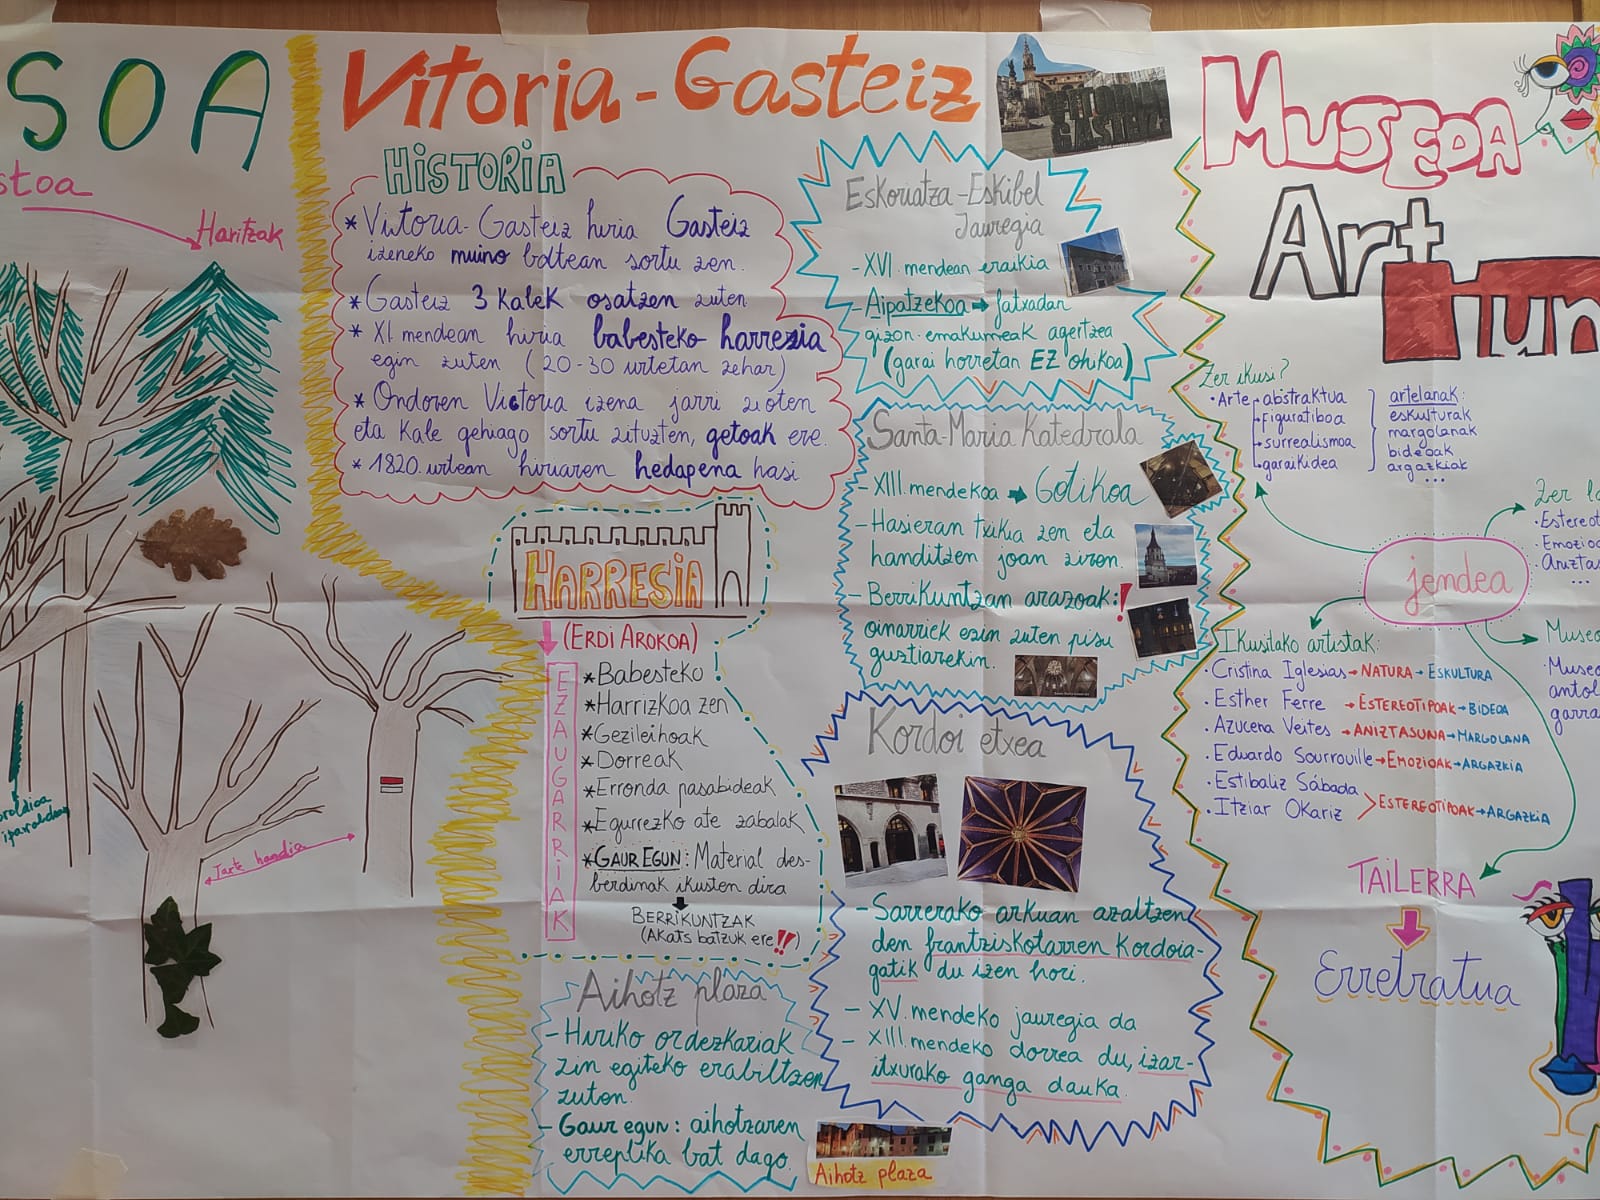 SOA
stoa
Haritzak
Tarte handia
iparraldean
Vitoria-Gasteiz
HISTORIA
* Vitoria-Gasteiz hiria Gasteiz
izeneko muino batean sortu zen.
* Gasteiz 3 kalek osatzen zuten
* XI. mendean hiria babesteko harresia
egin zuten (20-30 urtetan zehar)
* Ondoren Victoria izena jarri zioten
eta kale gehiago sortu zituzten, getoak ere.
* 1820. urtean hiriaren hedapena hasi
HARRESIA
(ERDI AROKOA)
EZAUGARRIAK
* Babesteko
* Harrizkoa zen
* Gezileihoak
* Dorreak
* Erronda pasabideak
* Egurrezko ate zabalak
* GAUR EGUN: Material des-
berdinak ikusten dira
BERRIKUNTZAK
(Akats batzuk ere!!)
Aihotz plaza
- Hiriko ordezkariak
zin egiteko erabiltzen
zuten.
- Gaur egun: aihotzaren
erreplika bat dago.
Aihotz plaza
VITORIA
GASTEIZ
Eskoriatza-Eskibel
Jauregia
- XVI. mendean eraikia
- Aipatzekoa → fatxadan
gizon-emakumeak agertzea
(garai horretan EZ ohikoa)
Santa-Maria Katedrala
- XIII. mendekoa → Gotikoa
- Hasieran txikia zen eta
handitzen joan ziren.
- Berrikuntzan arazoak:!
oinarriek ezin zuten pisu
guztiarekin.
Kordoi etxea
- Sarrerako arkuan azaltzen
den frantziskotarren kordoia-
gatik du izen hori.
- XV. mendeko jauregia da
- XIII. mendeko dorrea du, izar-
itxurako ganga dauka.
MUSEOA
Artium
Zer ikusi?
· Arte abstraktua
figuratiboa
surrealismoa
garaikidea
artelanak:
eskulturak
margolanak
bideoak
argazkiak
...
jendea
Zer la
· Estereot
· Emozioa
· Aniztas
...
Museo
· Museo
antol
garra
Ikusitako artistak:
· Cristina Iglesias → NATURA → ESKULTURA
· Esther Ferre → ESTEREOTIPOAK → BIDEOA
· Azucena Veites → ANIZTASUNA → MARGOLANA
· Eduardo Sourrouille → EMOZIOAK → ARGAZKIA
· Estibaliz Sábada
· Itziar Okariz > ESTEREOTIPOAK → ARGAZKIA
TAILERRA
Erretratua